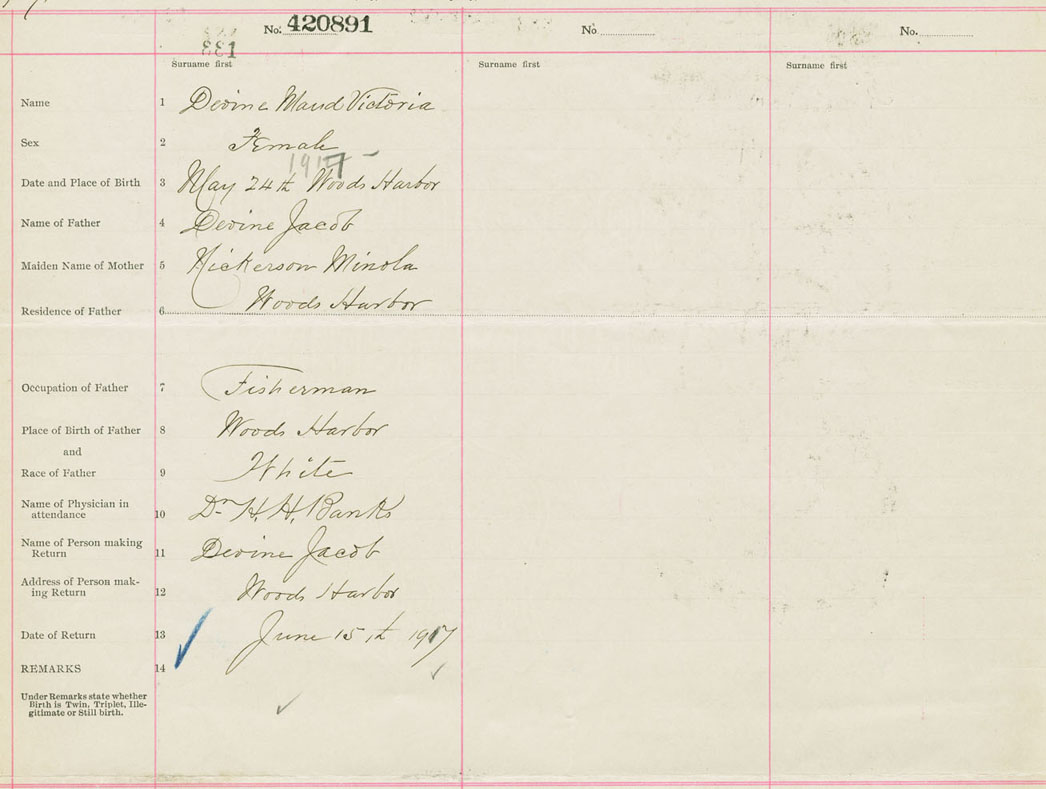 No. 420891 No No.
881
Surname first Surname first Surname first
Name 1 Devine Maud Victoria
Sex 2 Female
1917 -
Date and Place of Birth 3 May 24th Woods Harbor
Name of Father 4 Devine Jacob
Maiden Name of Mother 5 Nickerson Minola
Residence of Father 6 Woods Harbor
Occupation of Father 7 Fisherman
Place of Birth of Father 8 Woods Harbor
and
Race of Father 9 White
Name of Physician in
attendance 10 Dr H. H. Banks
Name of Person making
Return 11 Devine Jacob
Address of Person mak-
ing Return 12 Woods Harbor
Date of Return 13 June 15th 1917
REMARKS 14
Under Remarks state whether
Birth is Twin, Triplet, Ille-
gitimate or Still birth.